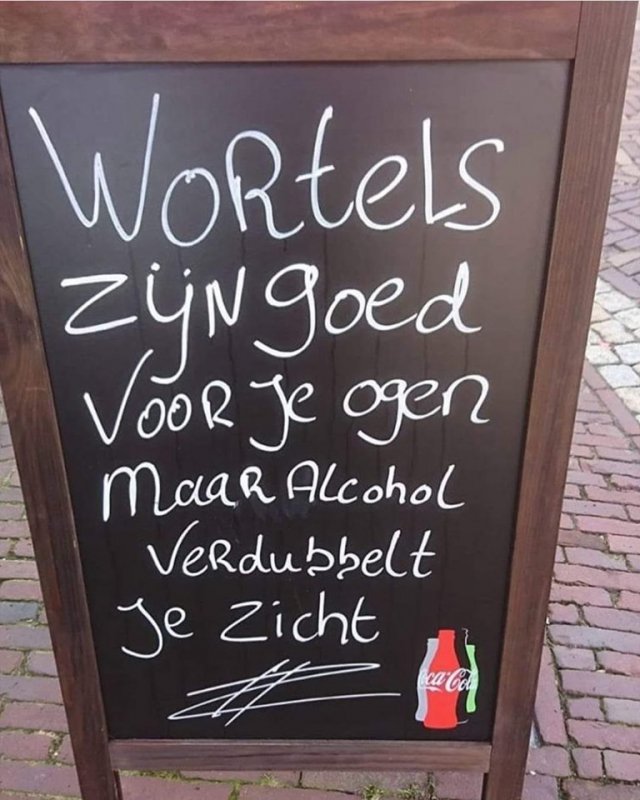 Wortels
zijn goed
voor je ogen
maar Alcohol
verdubbelt
Je zicht
Coca-Cola